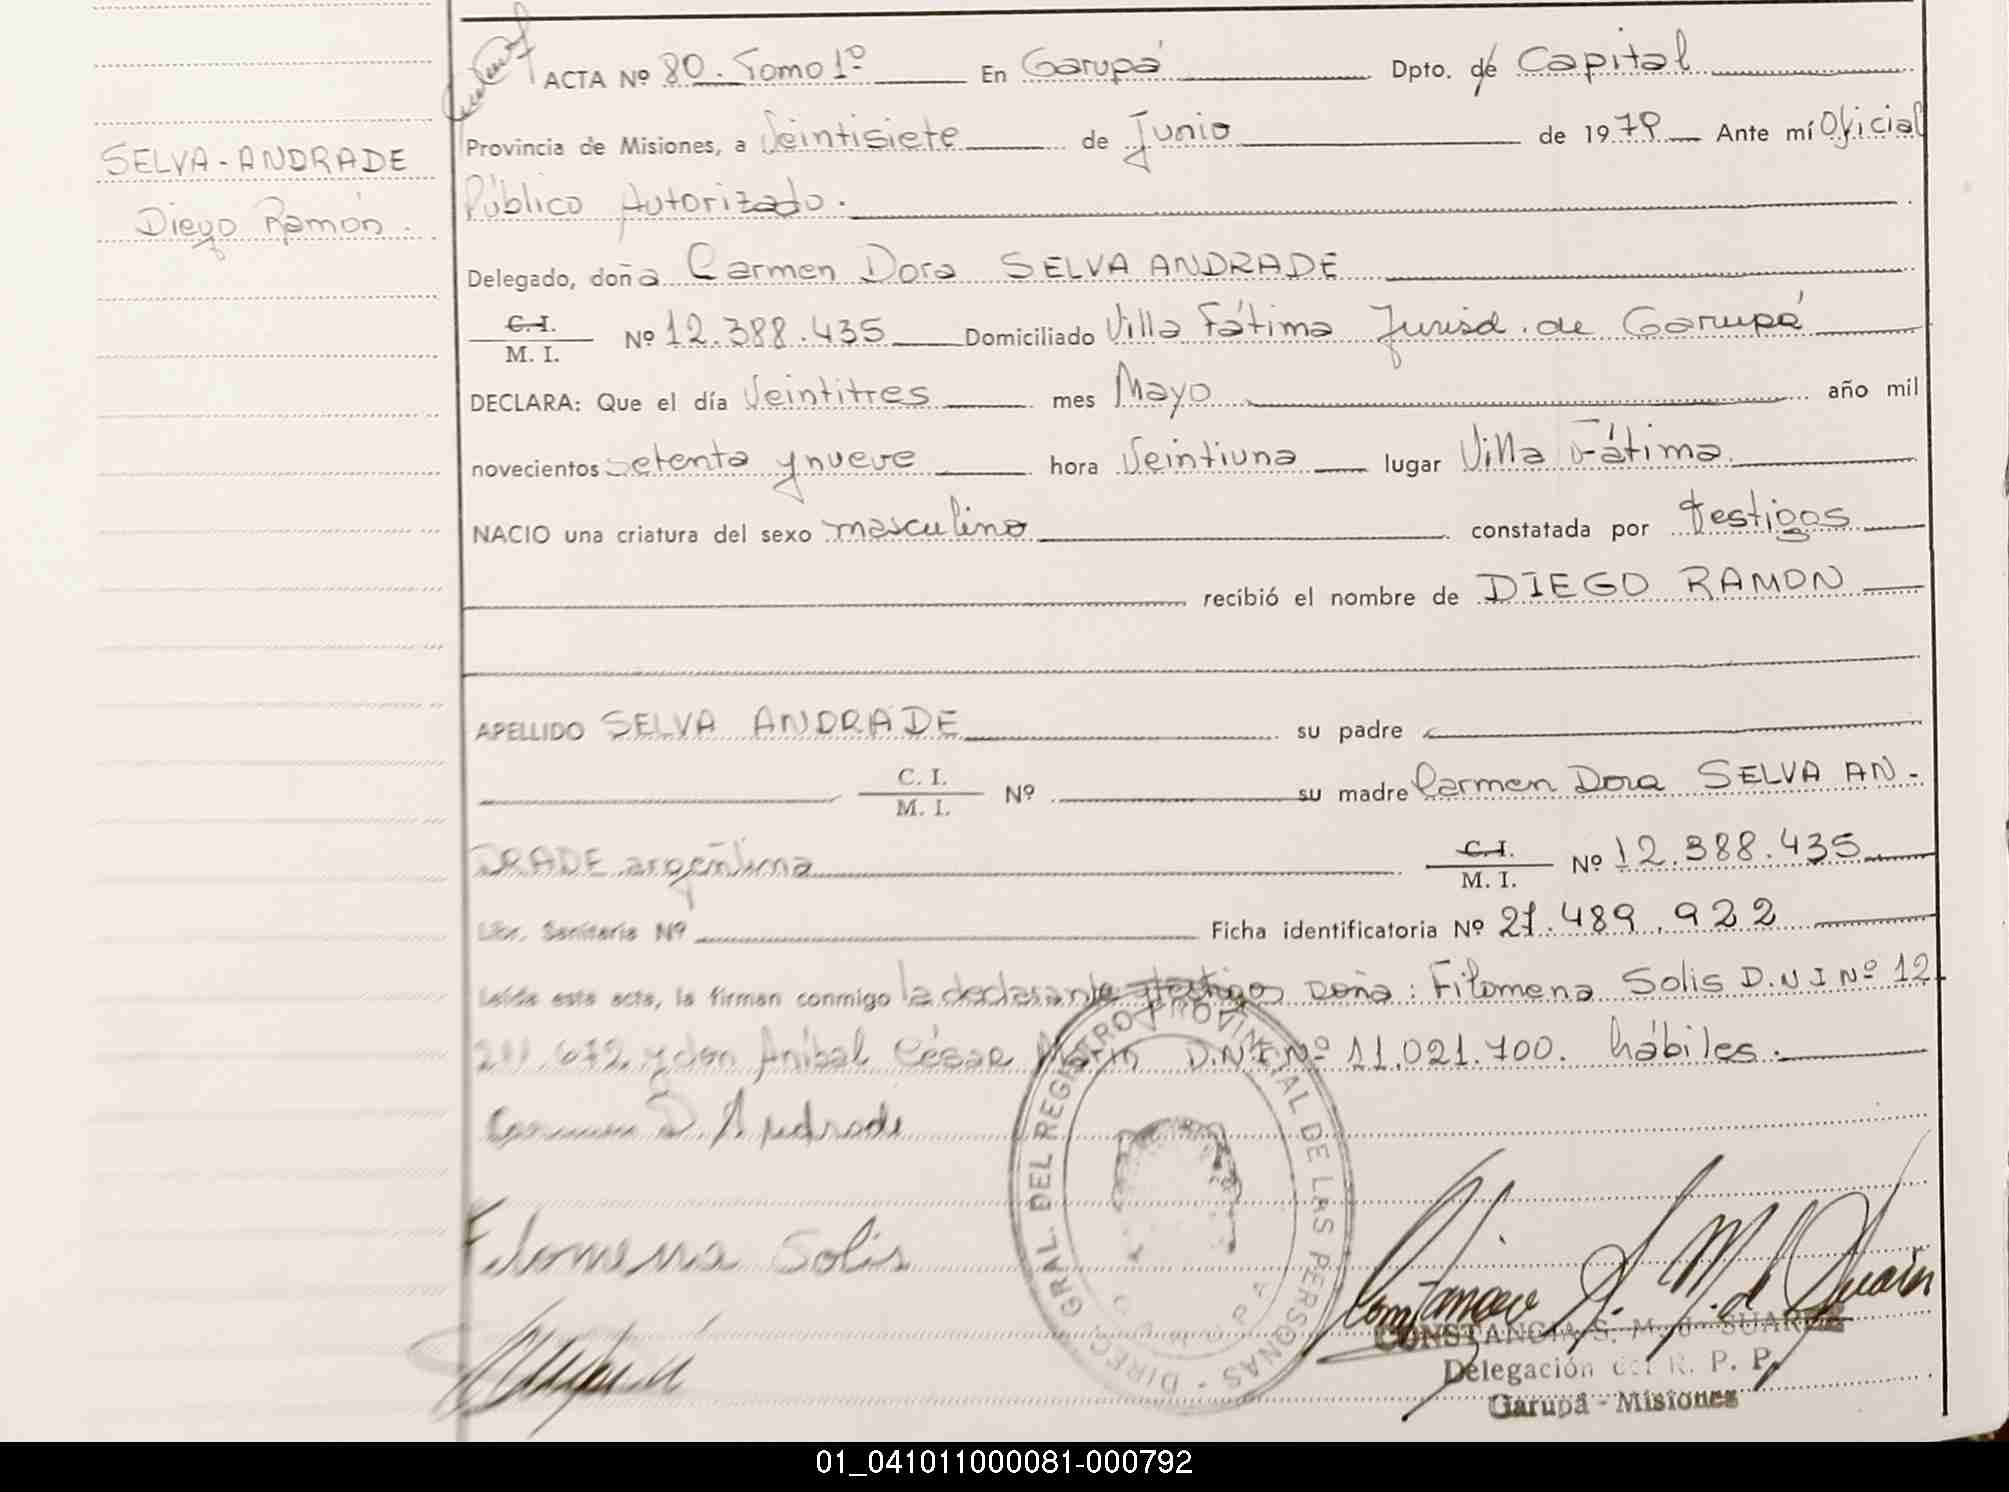 SELVA-ANDRADE
Diego Ramón.
ACTA Nº 80. Tomo 1º En Garupá Dpto. de Capital
Provincia de Misiones, a Veintisiete de Junio de 1979 Ante mí Oficial
Público Autorizado.
Delegado, doña Carmen Dora SELVA ANDRADE
C. I.
M. I. Nº 12.388.435 Domiciliado Villa Fátima Jurisd. de Garupá
DECLARA: Que el día Veintitres mes Mayo año mil
novecientos setenta y nueve hora Veintiuna lugar Villa Fátima.
NACIO una criatura del sexo masculino constatada por testigos
recibió el nombre de DIEGO RAMON
APELLIDO SELVA ANDRADE su padre
C. I.
M. I. Nº su madre Carmen Dora SELVA AN-
DRADE argentina C. I.
M. I. Nº 12.388.435
Libr. Sanitaria Nº Ficha identificatoria Nº 27.489.922
Leída esta acta, la firman conmigo la declarante testigos Doña: Filomena Solis D.N I Nº 12.
672 y don Aníbal César Marin D.N.I Nº 11.021.700. hábiles.
Carmen D. Andrade
Filomena Solis
DIREC. GRAL. DEL REGISTRO PROVINCIAL DE LAS PERSONAS
CONSTANCIA S. M. d SUAREZ
Delegación del R. P. P.
Garupá - Misiones
01_041011000081-000792